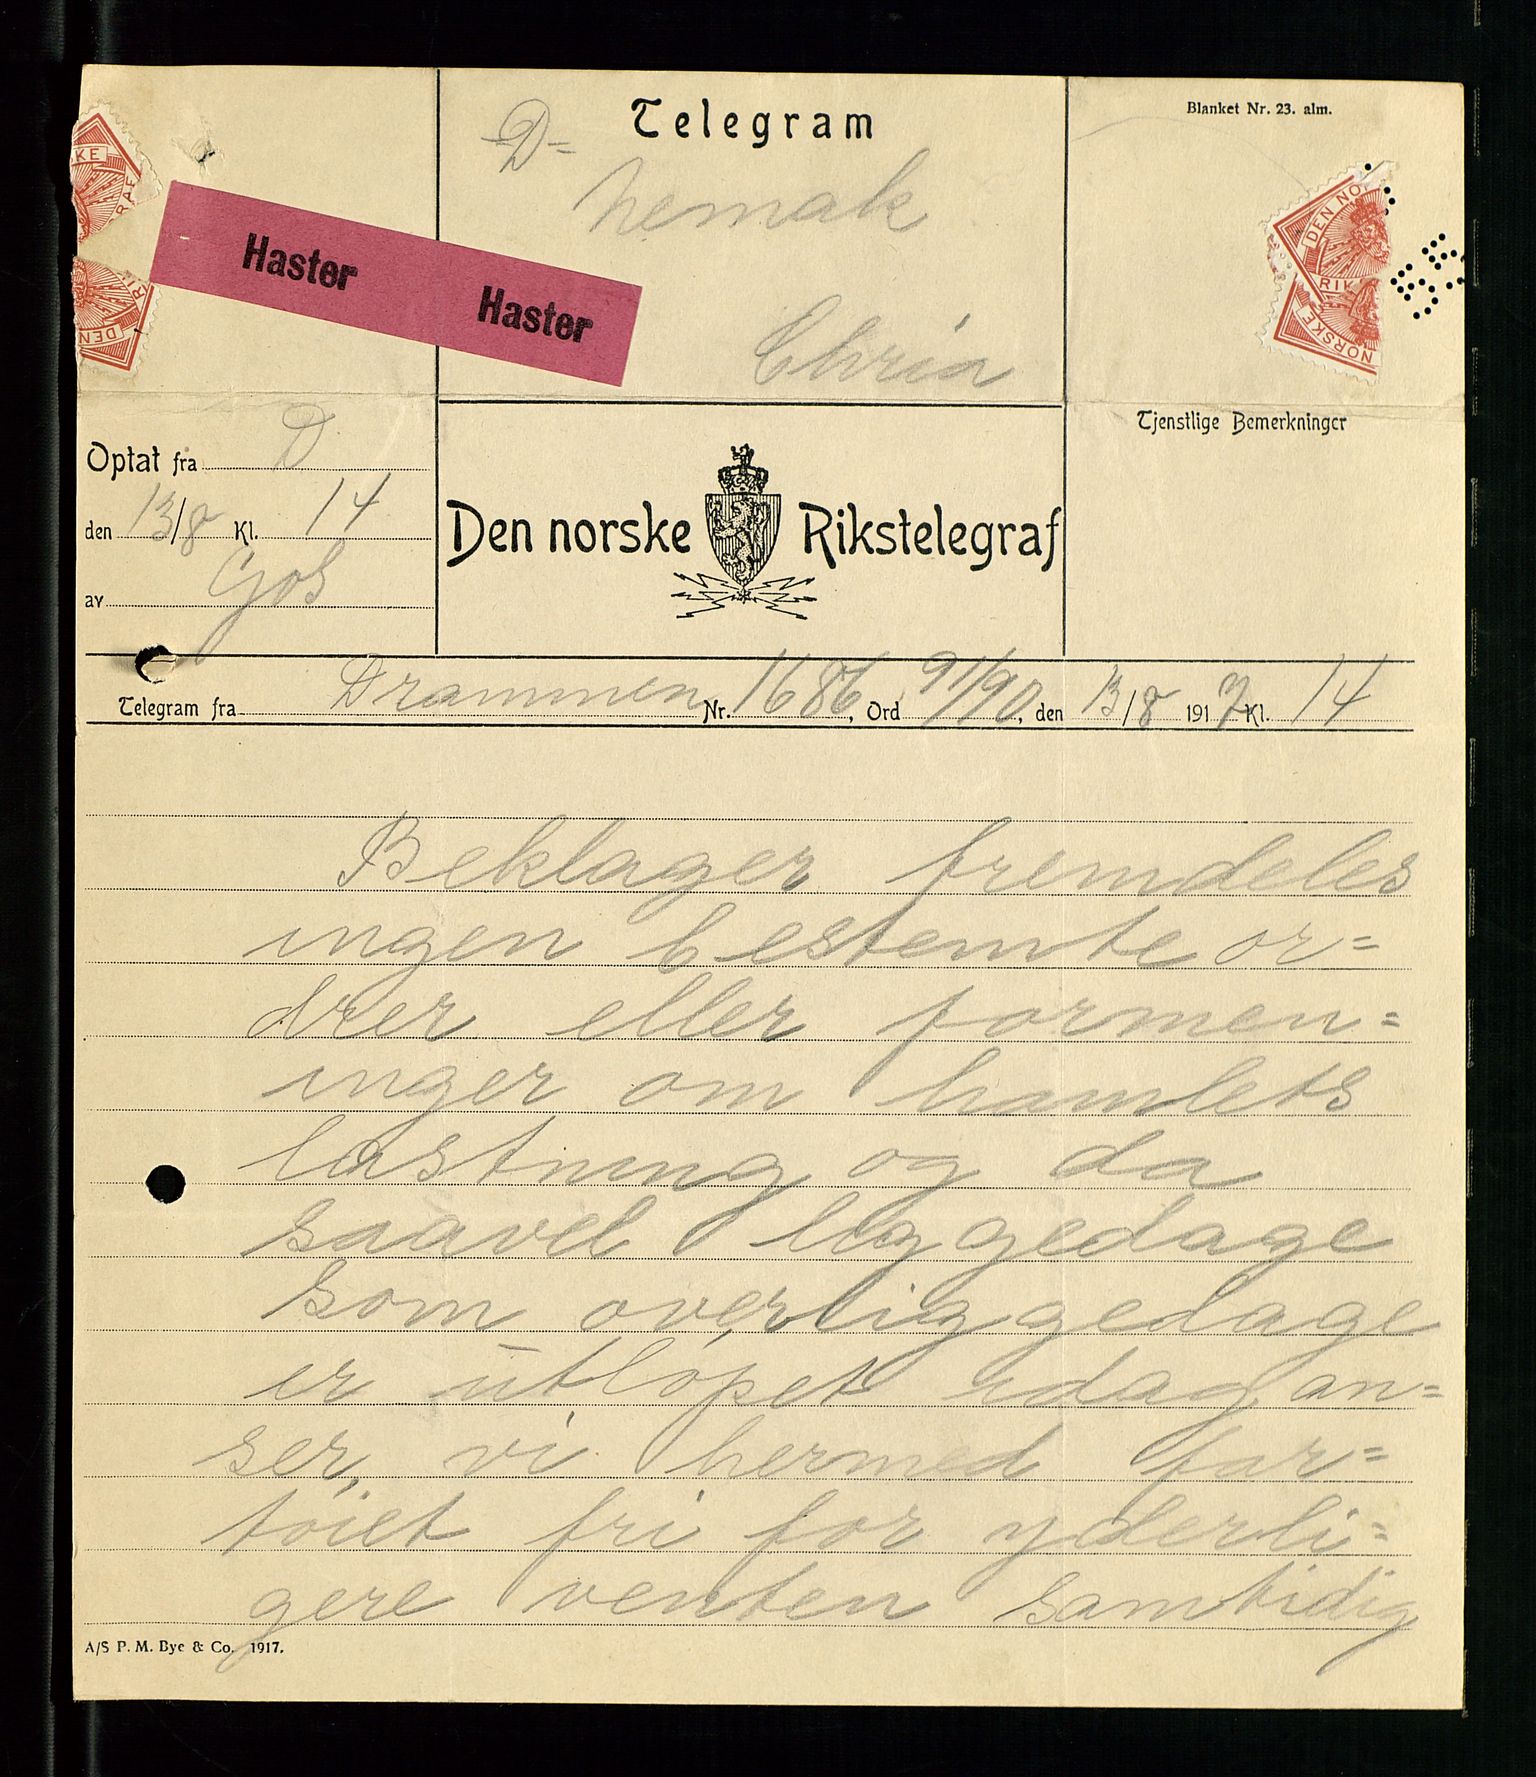 Telegram
Blanket Nr. 23. alm.
-D=
Nemak
Haster Haster
Chria
DEN NO
RIK
NORSKE
KE
RAF
RIK
DEN
Optat fra D
den 13/8 Kl. 14
av Gos
Den norske Rikstelegraf
Tjenstlige Bemerkninger
Telegram fra Drammen Nr. 1686, Ord 91/90, den 13/8 1917 Kl. 14
Beklager fremdeles
ingen bestemte or=
drer eller formen=
inger om hamlets
lastning og da
saavel liggedage
som overliggedage
er utløpet idag an=
ser, vi hermed far=
tøiet fri for yderli=
gere venten samtidig
A/S P. M. Bye & Co. 1917.